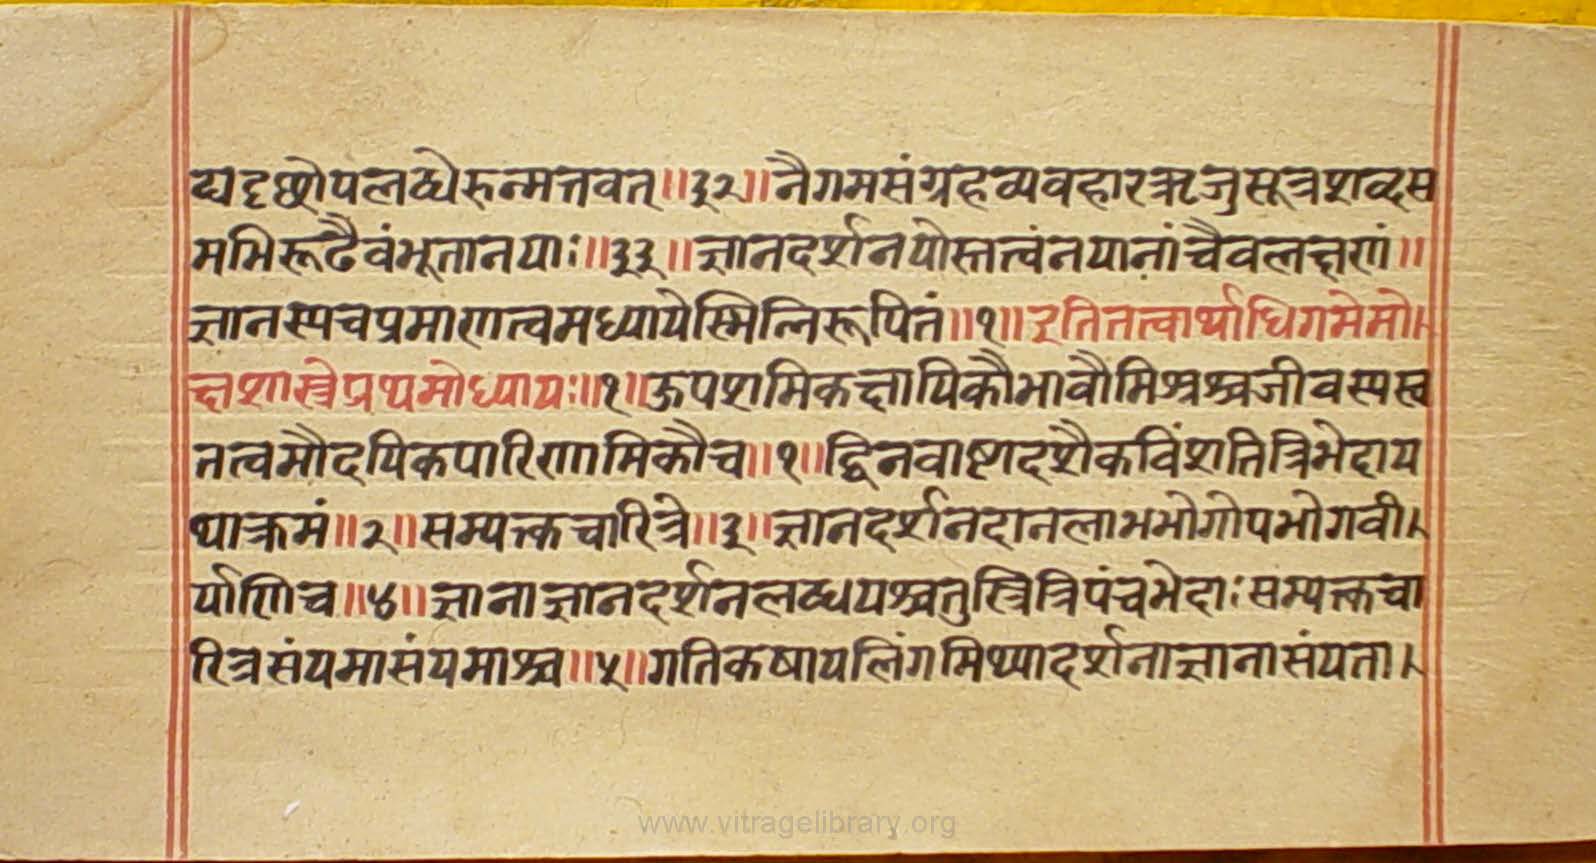 द्यदृछोपलब्धेरुन्मत्तवत्॥३२॥नैगमसंग्रहव्यवहारऋजुसूत्रशब्दस
मभिरूढैवंभूतानयाः॥३३॥ज्ञानदर्शनयोस्तत्वंनयानांचैवलक्षणं॥
ज्ञानस्यचप्रमाणत्वमध्यायेस्मिन्निरूपितं॥१॥इतितत्वार्थाधिगमेमो
क्षशास्त्रेप्रथमोध्यायः॥१॥ऊपशमिकक्षायिकौभावौमिश्रश्चजीवस्यस्व
तत्वमौदयिकपारिणामिकौच॥१॥द्विनवाष्टादशैकविंशतित्रिभेदाय
थाक्रमं॥२॥सम्यक्त्कचारित्रे॥३॥ज्ञानदर्शनदानलाभभोगोपभोगवी
र्याणिच॥४॥ज्ञानाज्ञानदर्शनलब्धयश्चतुस्त्रित्रिपंचभेदाःसम्यक्त्कचा
रित्रसंयमासंयमाश्च॥५॥गतिकषायलिंगमिथ्यादर्शनाज्ञानासंयता
www.vitragelibrary.org